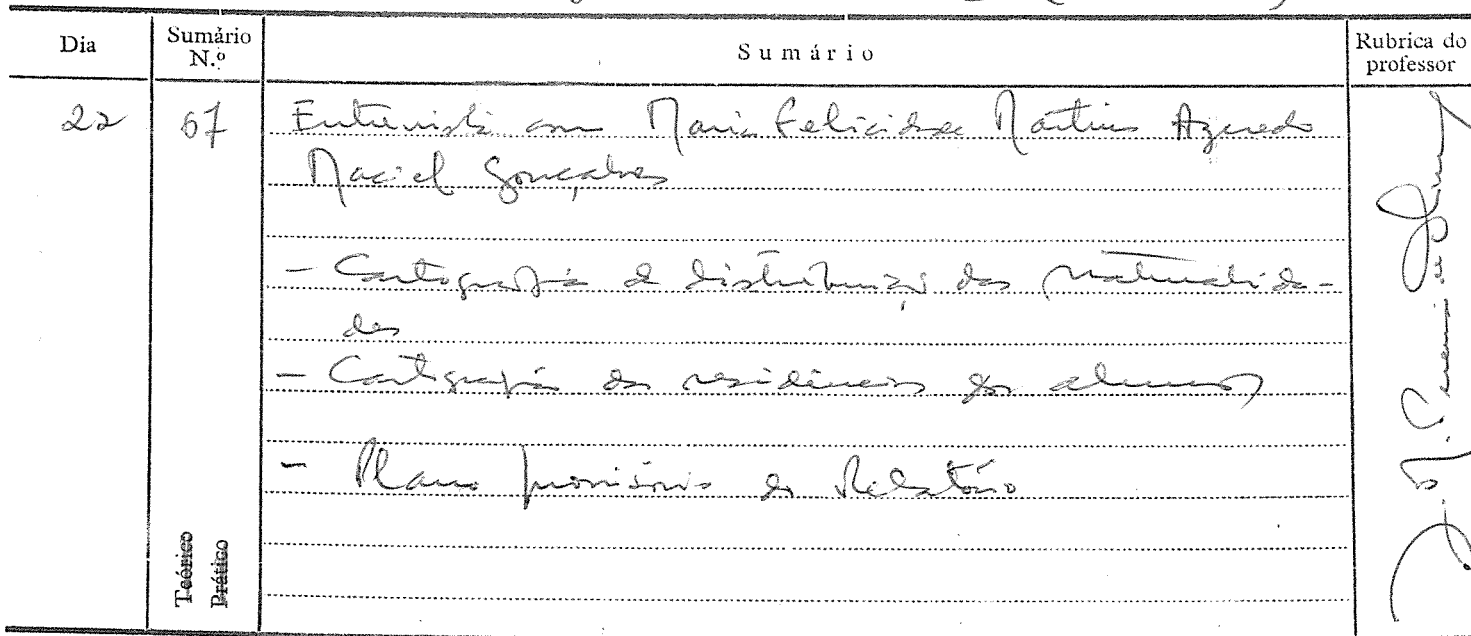 Dia
Sumário N.º
Sumário
Rubrica do professor
22
67
Entrevista com Maria Felicidade Martins Azevedo
Maciel Gonçalves
- Cartografia da distribuição das naturalida-
des
- Cartografia das residências dos alunos
- Plano provisório do Relatório
Teórico
Prático